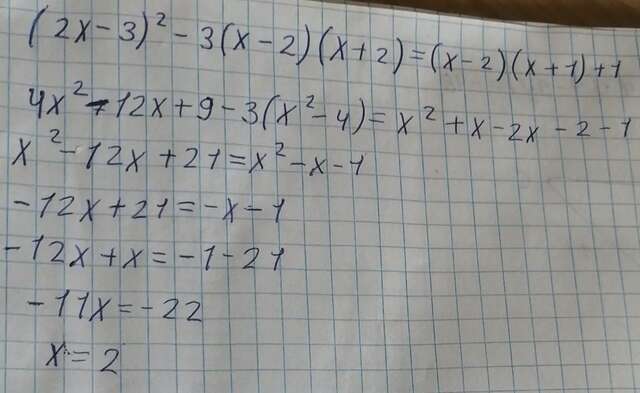 (2x-3)² - 3(x-2)(x+2) = (x-2)(x+1)+1
4x² - 12x + 9 - 3(x² - 4) = x² + x - 2x - 2 - 1
x² - 12x + 21 = x² - x - 1
-12x + 21 = -x - 1
-12x + x = -1 - 21
-11x = -22
x = 2